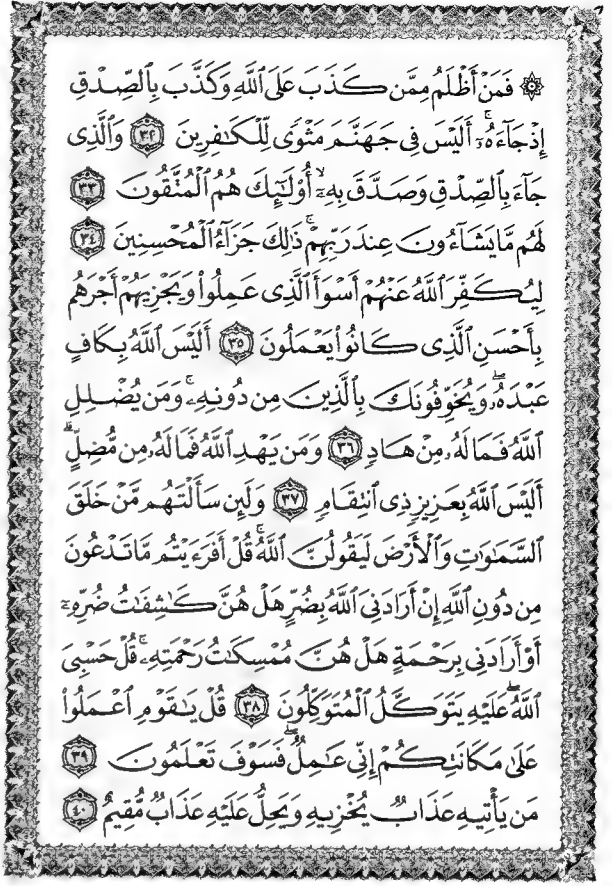 ۞ فَمَنْ أَظْلَمُ مِمَّن كَذَبَ عَلَى ٱللَّهِ وَكَذَّبَ بِٱلصِّدْقِ
إِذْ جَآءَهُۥٓ ۚ أَلَيْسَ فِى جَهَنَّمَ مَثْوًى لِّلْكَـٰفِرِينَ ٣٢ وَٱلَّذِى
جَآءَ بِٱلصِّدْقِ وَصَدَّقَ بِهِۦٓ ۙ أُو۟لَـٰٓئِكَ هُمُ ٱلْمُتَّقُونَ ٣٣
لَهُم مَّا يَشَآءُونَ عِندَ رَبِّهِمْ ۚ ذَٰلِكَ جَزَآءُ ٱلْمُحْسِنِينَ ٣٤
لِيُكَفِّرَ ٱللَّهُ عَنْهُمْ أَسْوَأَ ٱلَّذِى عَمِلُوا۟ وَيَجْزِيَهُمْ أَجْرَهُم
بِأَحْسَنِ ٱلَّذِى كَانُوا۟ يَعْمَلُونَ ٣٥ أَلَيْسَ ٱللَّهُ بِكَافٍ
عَبْدَهُۥ ۖ وَيُخَوِّفُونَكَ بِٱلَّذِينَ مِن دُونِهِۦ ۚ وَمَن يُضْلِلِ
ٱللَّهُ فَمَا لَهُۥ مِنْ هَادٍ ٣٦ وَمَن يَهْدِ ٱللَّهُ فَمَا لَهُۥ مِن مُّضِلٍّ ۗ
أَلَيْسَ ٱللَّهُ بِعَزِيزٍ ذِى ٱنتِقَامٍ ٣٧ وَلَئِن سَأَلْتَهُم مَّنْ خَلَقَ
ٱلسَّمَـٰوَٰتِ وَٱلْأَرْضَ لَيَقُولُنَّ ٱللَّهُ ۚ قُلْ أَفَرَءَيْتُم مَّا تَدْعُونَ
مِن دُونِ ٱللَّهِ إِنْ أَرَادَنِىَ ٱللَّهُ بِضُرٍّ هَلْ هُنَّ كَـٰشِفَـٰتُ ضُرِّهِۦٓ
أَوْ أَرَادَنِى بِرَحْمَةٍ هَلْ هُنَّ مُمْسِكَـٰتُ رَحْمَتِهِۦ ۚ قُلْ حَسْبِىَ
ٱللَّهُ ۖ عَلَيْهِ يَتَوَكَّلُ ٱلْمُتَوَكِّلُونَ ٣٨ قُلْ يَـٰقَوْمِ ٱعْمَلُوا۟
عَلَىٰ مَكَانَتِكُمْ إِنِّى عَـٰمِلٌ ۖ فَسَوْفَ تَعْلَمُونَ ٣٩
مَن يَأْتِيهِ عَذَابٌ يُخْزِيهِ وَيَحِلُّ عَلَيْهِ عَذَابٌ مُّقِيمٌ ٤٠